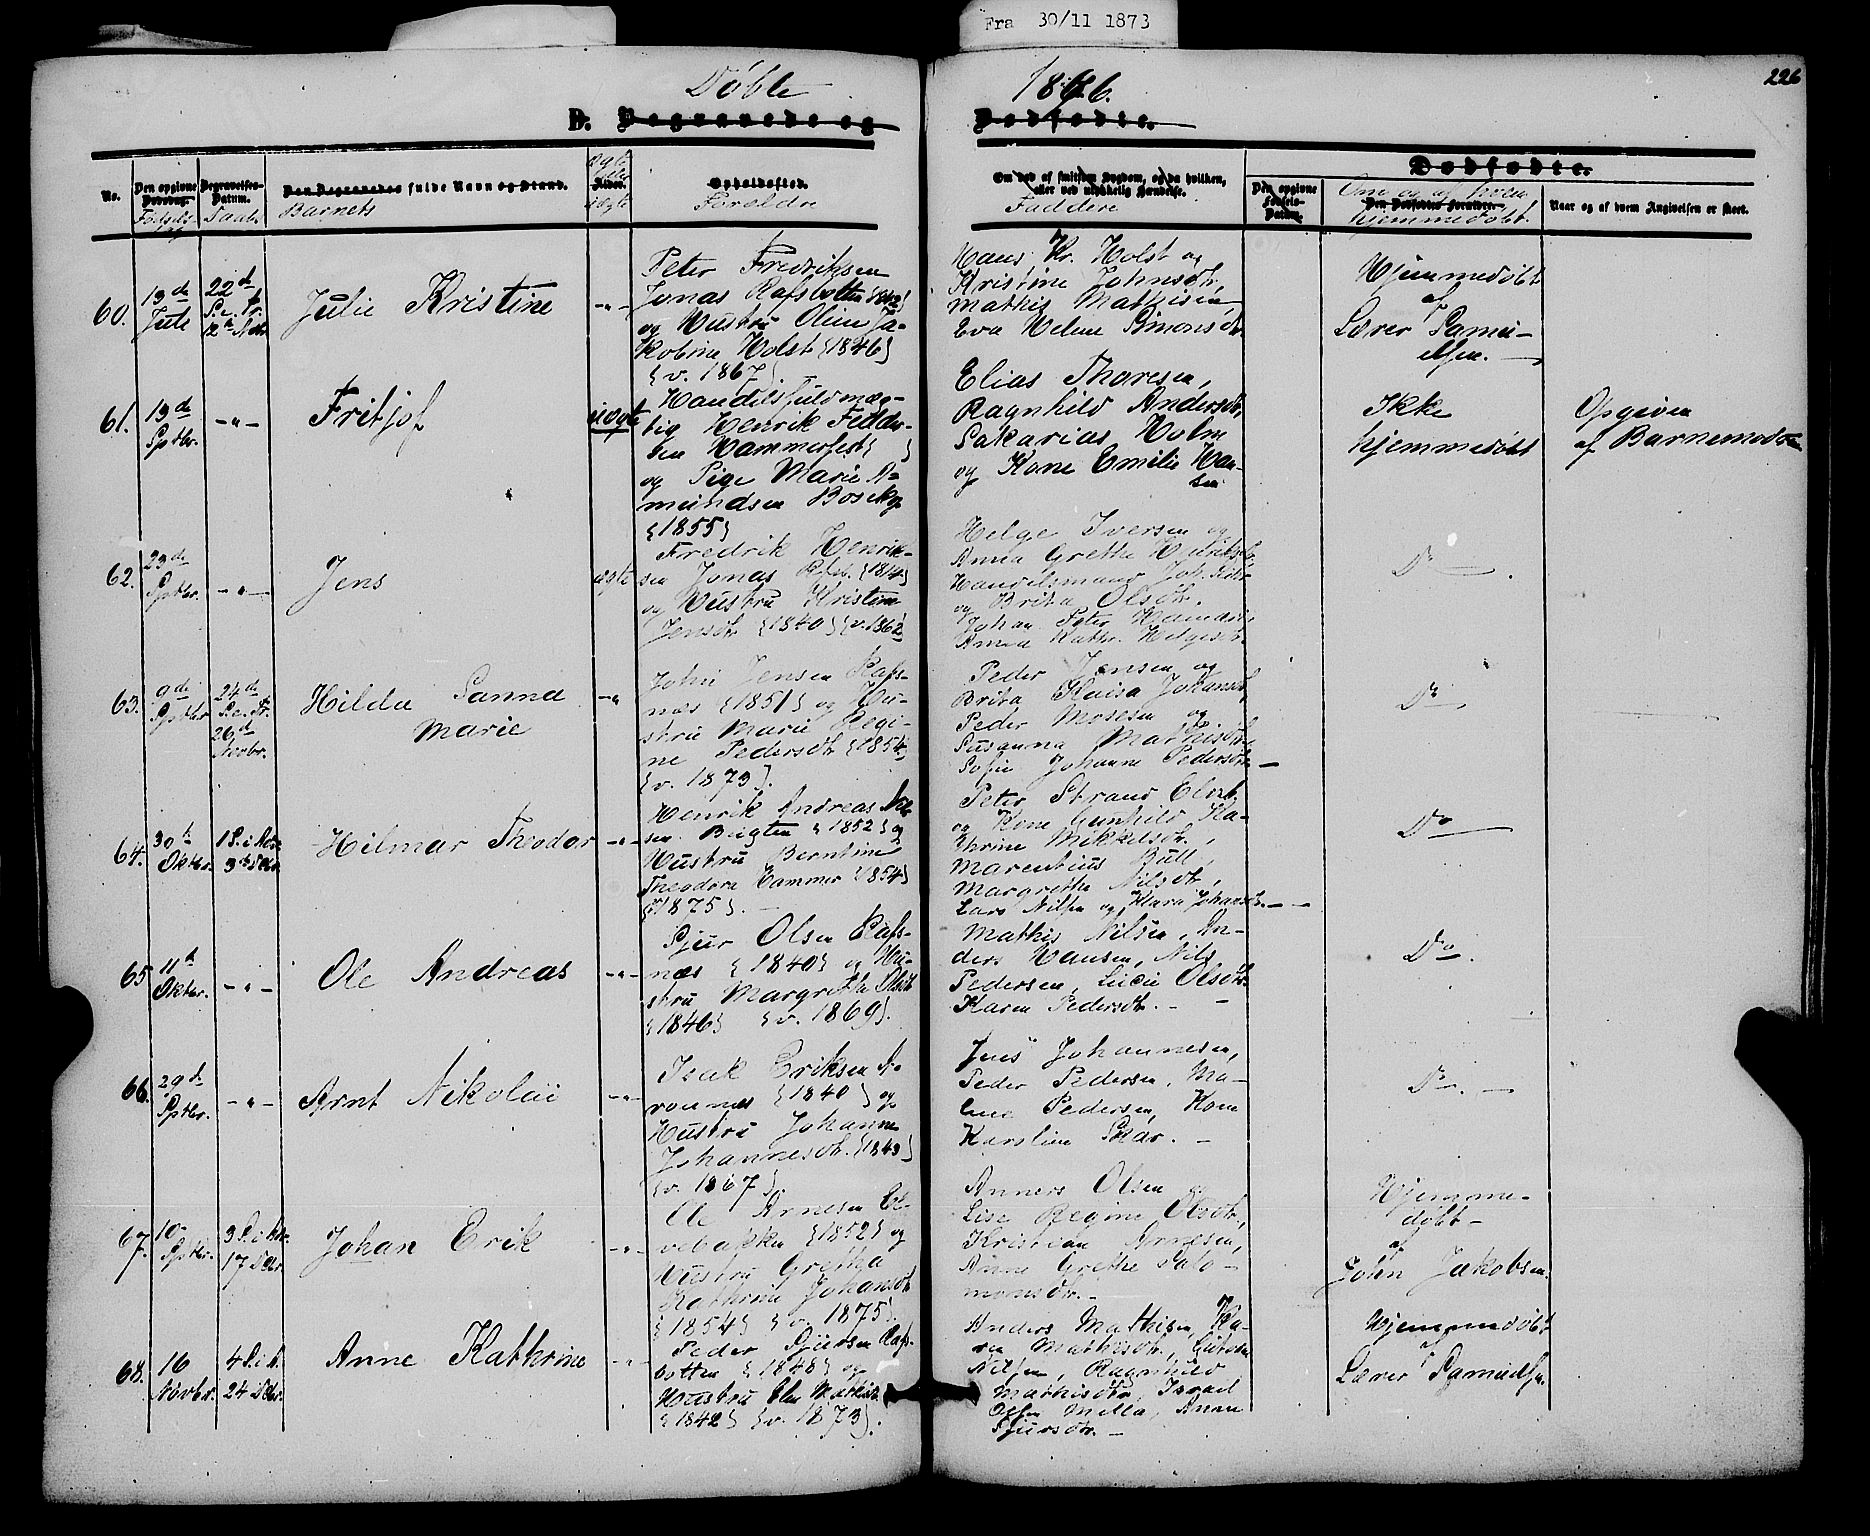 Fra 30/11 1873
226
Døbte 1876.
D. Begravede og Dødfødte.
No.
Den opgivne Dødsdag.
Fødsels-
Begravelses-Datum.
Daab.
Den Begravedes fulde Navn og Stand.
Barnets
Ægte
eller
Alder.
uægte
Opholdssted.
Forældre
Om død af smitsom Sygdom, og da hvilken,
eller ved ulykkelig Hændelse.
Faddere
Dødfødte.
Den opgivne
Fødsels-
Datum.
Om og af hvem
Den Dødfødtes Forældre.
hjemmedøbt.
Naar og af hvem Angivelsen er skeet.
60.
13de
Juli
22de
S. e. Tr.
12te Nvbr
Julie Kristine
-"-
Peter Fredriksen
Jonas Rafsbotten
og Hustru Oline Ja-
kobine Holst {1846}
{v. 1867}
Hans Kr. Holst og
Kristine Johnsdt,
Mathis Mathisen,
Eva Helene Simonsdt.
Hjemmedøbt
af
Lærer Samu-
elsen.
61.
13de
Sptbr.
-"-
Fritjof
uægte
Handelsfuldmæg-
tig Henrik Fedder-
sen Hammerfest { }
og Pige Marie A-
mundsen Bosekop
{1855}
Elias Thoresen,
Ragnhild Andersdt,
Sakarias Holm
og Kone Emilie Han-
sen
Ikke
hjemmedøbt
Opgiven
af Barnemodr
62.
23de
Sptbr.
-"-
Jens
ægte
Fredrik Henrik-
sen Jonas Rfsb. {1844}
og Hustru Kristine
Jensdt. {1840} {v. 1862
Helge Iversen og
Anna Grethe Henriksdt,
Handelsmand Joh.
og Brita Olsdt.
Johan Peter
Anna Kathr. Helgesdt.
Do
63.
9de
Sptbr
24de
S. e. Tr.
26de
Novbr.
Hilda Sanna
Marie
-"
John Jensen Rafs-
næs {1851} og Hu-
stru Marie Regi-
ne Pedersdt {1854}
{v. 1873}.
Peder Jensen og
Brita Kaisa Johansdt,
Peder Mosesen og
Susanna Mathisdt,
Sofie Johanne Pedersdt. —
Do
64.
30te
Oktbr.
1 S. i Adv.
3die Dcbr
Hilmar Theodor
-"-
Henrik Andreas
sen Bugten {1852} og
Hustru Berntine
Theodora Hammer {1854}
{1875}. —
Peter Strand Elvb.
og Kone Gunhild Ka-
thrine Mikkelsdt.,
Marentius Bull,
Margrethe Nilsdt,
Lars Nilsen og Klara Johansdt. —
Do
65
11te
Oktbr.
-"-
Ole Andreas
-"-
Sjur Olsen Rafs-
næs {1840} og Hu-
stru Margrethe Olsdt
{1846} {v. 1869}.
Mathis Nilsen, An-
ders Hansen, Nils
Pedersen, Lucie Olsdt.
Karen Pedersdt. —
Do.
66.
29de
Sptbr.
-"-
Arnt Nikolai
-"-
Isak Eriksen A-
ronnæs {1840} og
Hustru Johanne
Johannesdt. {1843}
{v. 1867}.
Jens Johannesen,
Peder Pedersen, Ma-
Pedersen, Kone
Karoline Skar. —
Do. —
67.
10
Sptbr.
3 S. i Adv.
17 Dcbr.
Johan Erik
-"-
Ole Arnesen El-
vebakken {1852} og
Hustru Grethe
Kathrine Johansdt
{1854} {v. 1875}.
Anners Olsen og
Lise Regine Olsdt,
Kristian Arnesen,
Anne Grethe Salo-
monsdt. —
Hjemme-
døbt —
af
John Jakobsen.
68.
16
Novbr.
4 S. i A.
24 Dcbr.
Anne Kathrine
-"-
Peder Sjursen Rafs-
botten {1848} og
Hustru Elen Mathisdt.
{1842} {v. 1873}.
Anders Mathisen, Ka-
ren Mathisdt,
Nilsen, Ragnhild
Mathisdt, Israil
Olsen Mella, Anne
Sjursdt. —
Hjemmedøbt
af
Lærer Samuelsn.